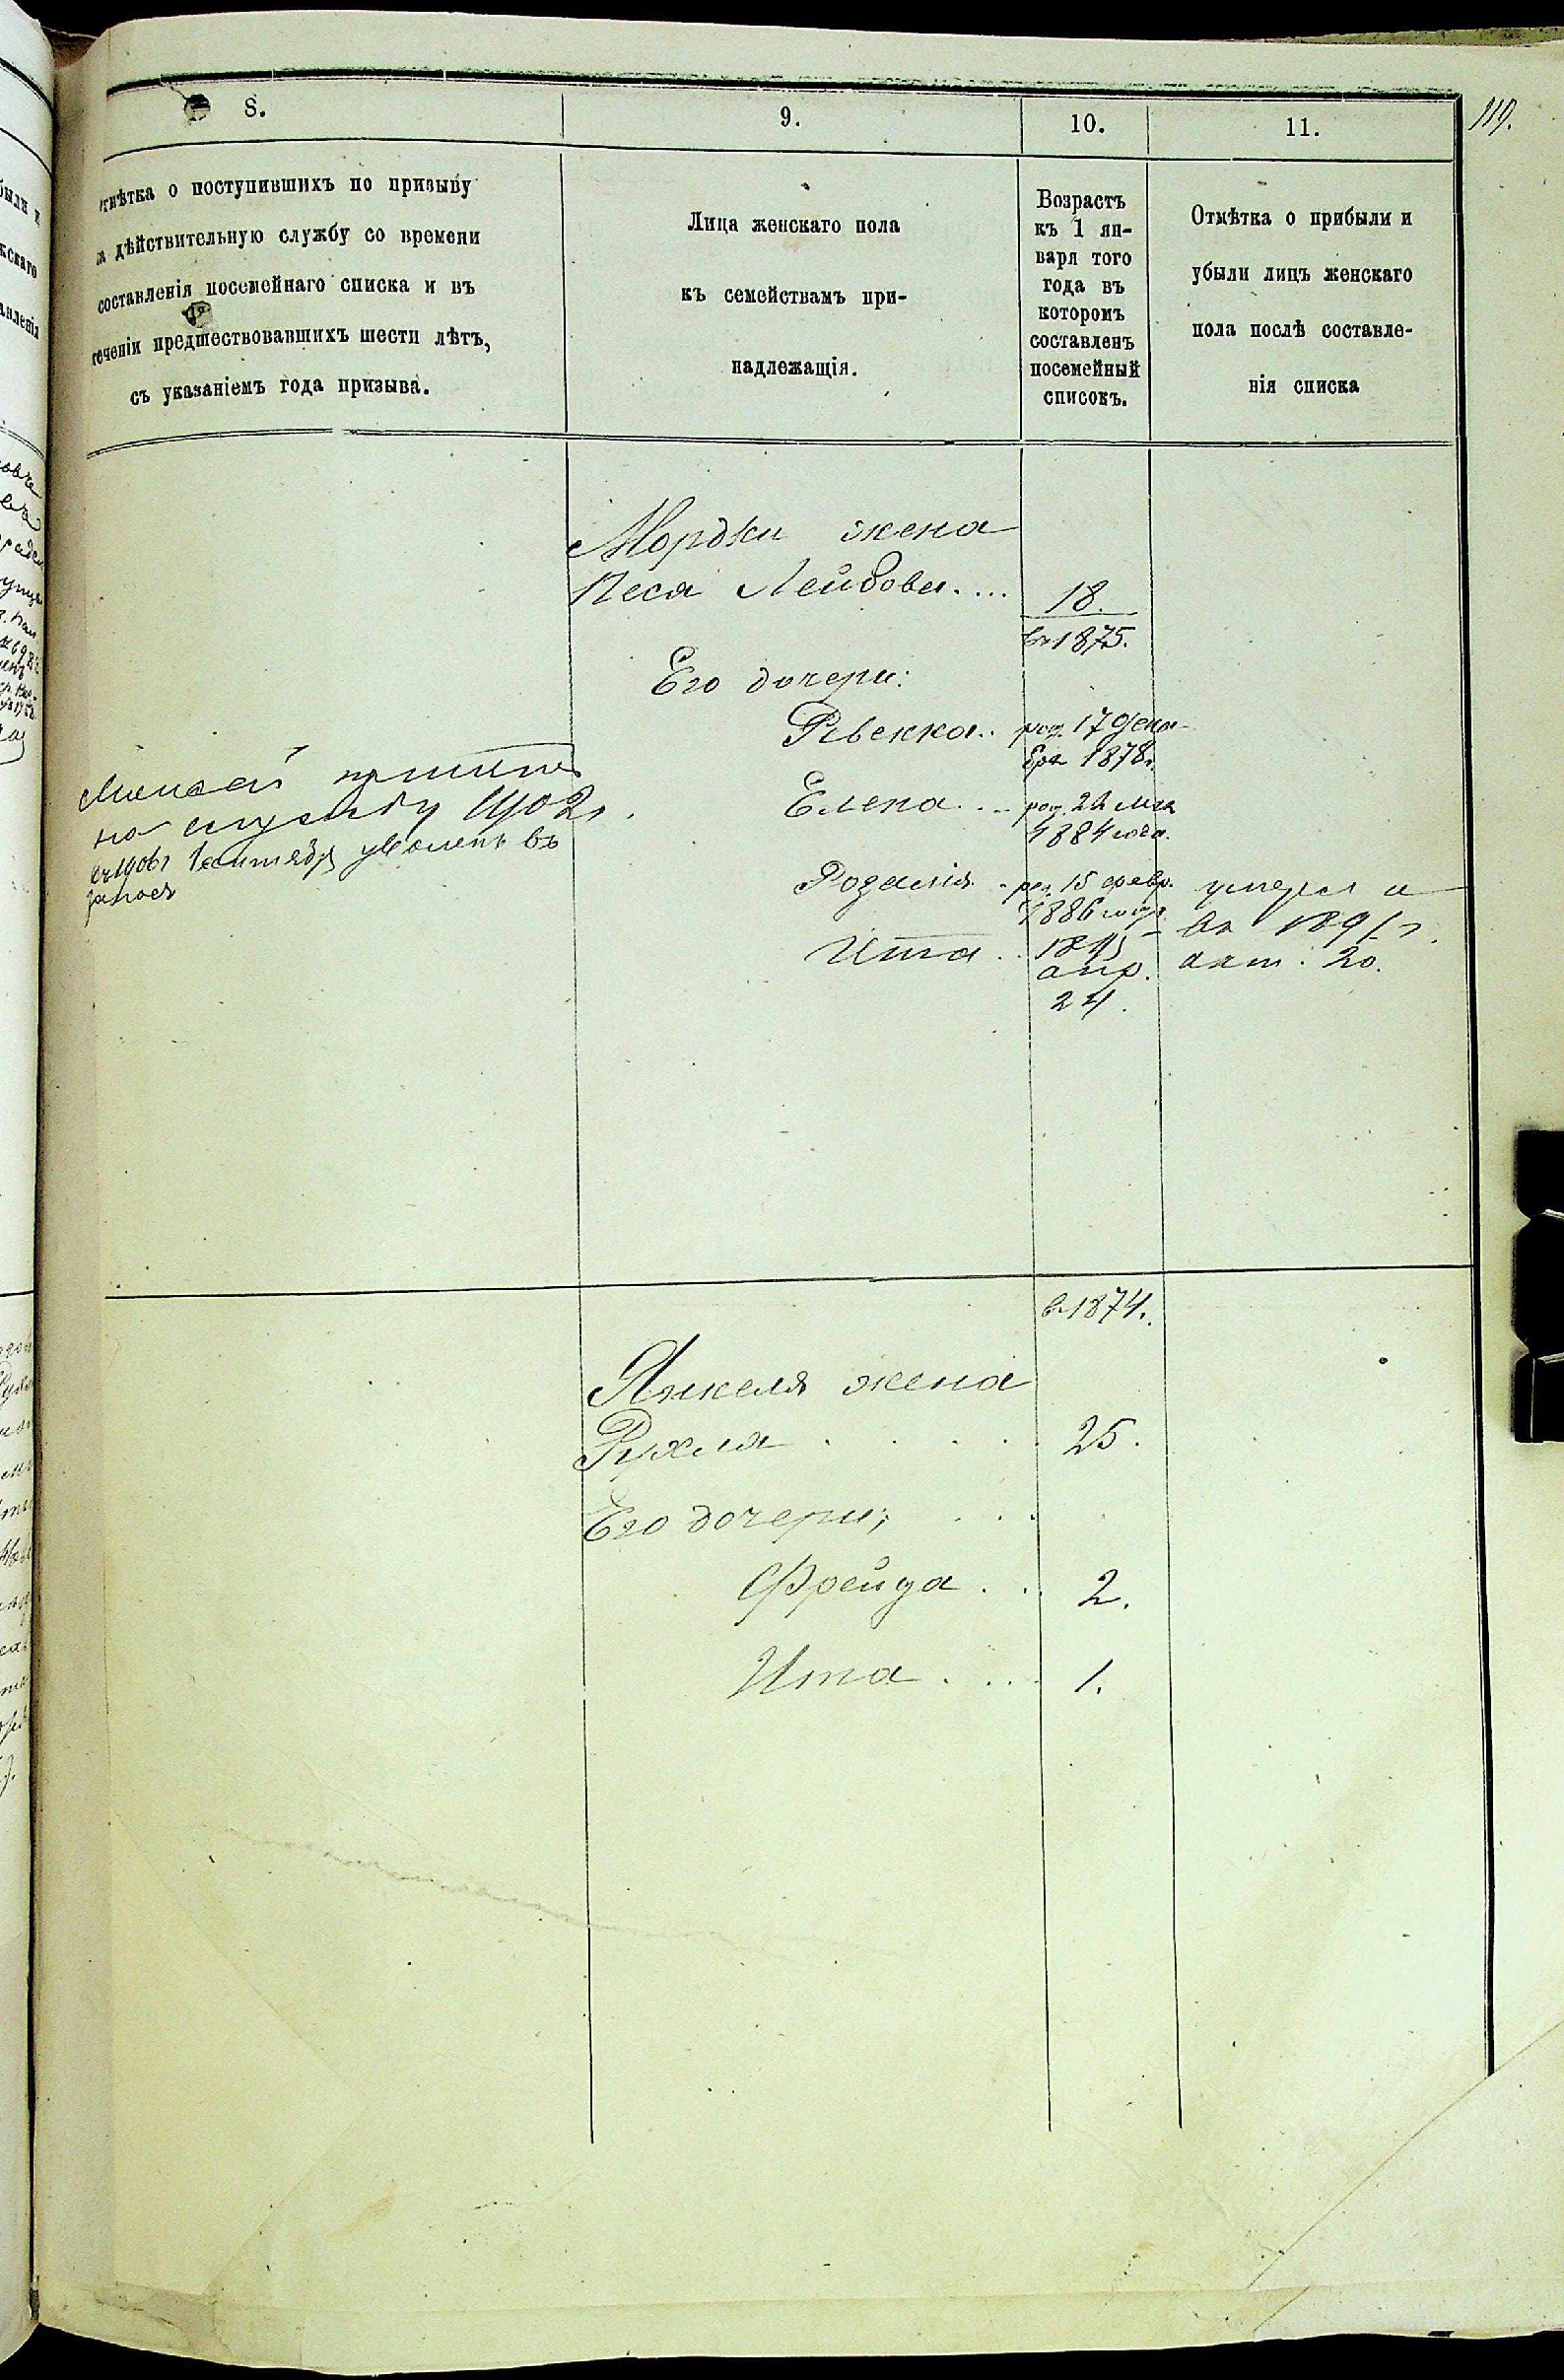 119.
8.
9.
10.
11.
тмѣтка о поступившихъ по призыву
на дѣйствительную службу со времени
составленія посемейнаго списка и въ
теченіи предшествовавшихъ шести лѣтъ,
съ указаніемъ года призыва.
Лица женскаго пола
къ семействамъ при-
надлежащія.
Возрастъ
къ 1 ян-
варя того
года въ
которомъ
составленъ
посемейный
списокъ.
Отмѣтка о прибыли и
убыли лицъ женскаго
пола послѣ составле-
нія списка
Мордки жена
Песя Лейбова.... 18.
въ 1875.
Его дочери:
Ривекка.. род. 17 дека-
бря 1878г.
принятъ
на службу 1902г.
въ 1906г 1 сентября уволенъ въ
запасъ
Елена... род. 22 мая
1884 года.
Розалія. род. 15 февр.
1886 года
умерла
въ 1891 г.
акт. 20.
Ита.. 1895
апр.
24.
въ 1874.
Янкеля жена
Рухля..... 25.
Его дочери;...
Фрейда... 2.
Ита.... 1.